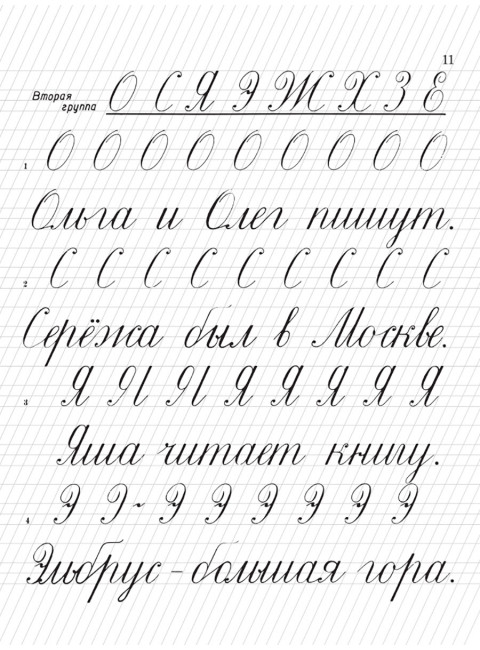 11
Вторая группа О С Я Э Ж Х З Е
1 О О О О О О О О О
Ольга и Олег пишут.
2 С С С С С С С С С
Серёжа был в Москве.
3 Я Я Я Я Я Я Я Я
Яша читает книгу.
4 Э Э ~ Э Э Э Э Э Э
Эльбрус – большая гора.